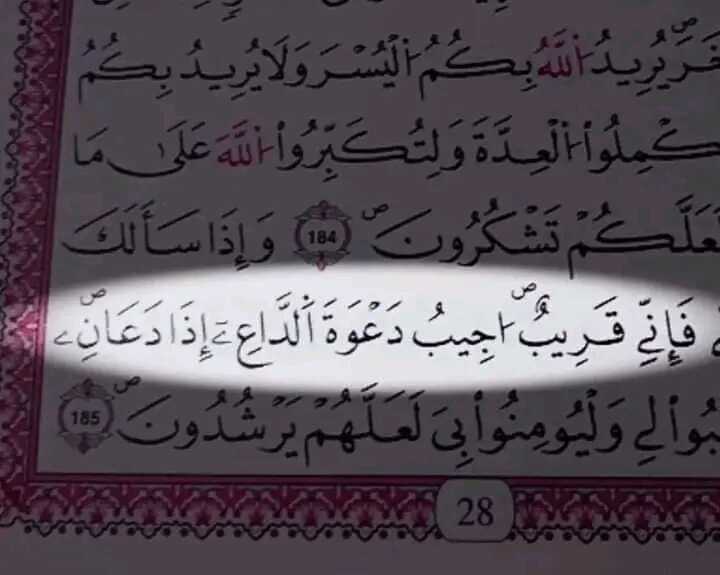 خَرَۖ يُرِيدُ اُ۬للَّهُ بِكُمُ اُ۬لْيُسْرَ وَلَا يُرِيدُ بِكُمُ
كْمِلُواْ اُ۬لْعِدَّةَ وَلِتُكَبِّرُواْ اُ۬للَّهَ عَلَىٰ مَا
عَلَّكُمْ تَشْكُرُونَۖ 184 وَإِذَا سَأَلَكَ
فَإِنِّے قَرِيبٌۖ ا۟جِيبُ دَعْوَةَ اَ۬لدَّاعِۦٓ إِذَا دَعَانِۦۖ
بُواْ لِے وَلْيُومِنُواْ بِے لَعَلَّهُمْ يَرْشُدُونَۖ 185
28